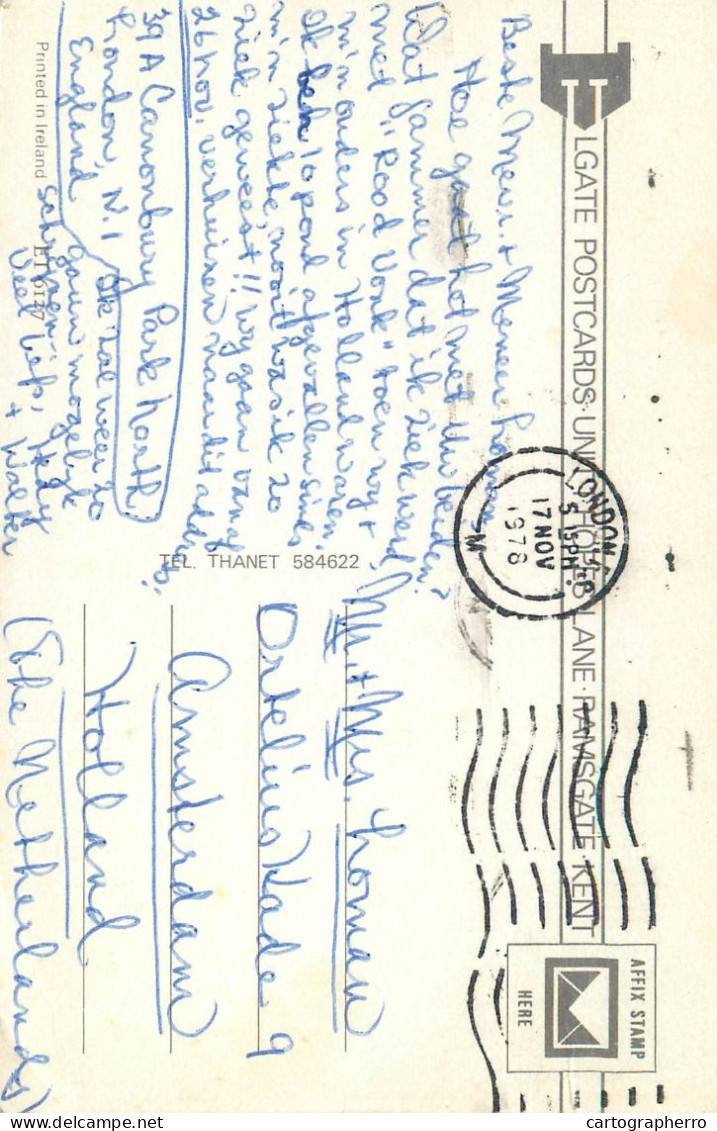 LGATE POSTCARDS UNI HOPES LANE · RAMSGATE KENT
Beste Mevr. + Meneer Loman,
Hoe gaat het met Uw beiden?
Wat jammer dat ik ziek werd
met "Rood Vonk" toen wy +
m'n ouders in Holland waren.
Ik heb 10 pond afgevallen sinds
m'n ziekte, nooit was ik zo
ziek geweest!! Wy gaan vanaf
26 Nov. verhuizen naar dit address:
39A Canonbury Park North,
London, N.1
England
Ik zal weer zo
gauw mogelyk
schryven.
Veel liefs,
+ Walter
Printed in Ireland
ET 6127
TEL. THANET 584622
LONDON
5 15 PM
17 NOV
1978
W
AFFIX STAMP
HERE
Mr. + Mrs. Loman
Ortelius Kade 9
Amsterdam
Holland
(The Netherlands)
cartographerro